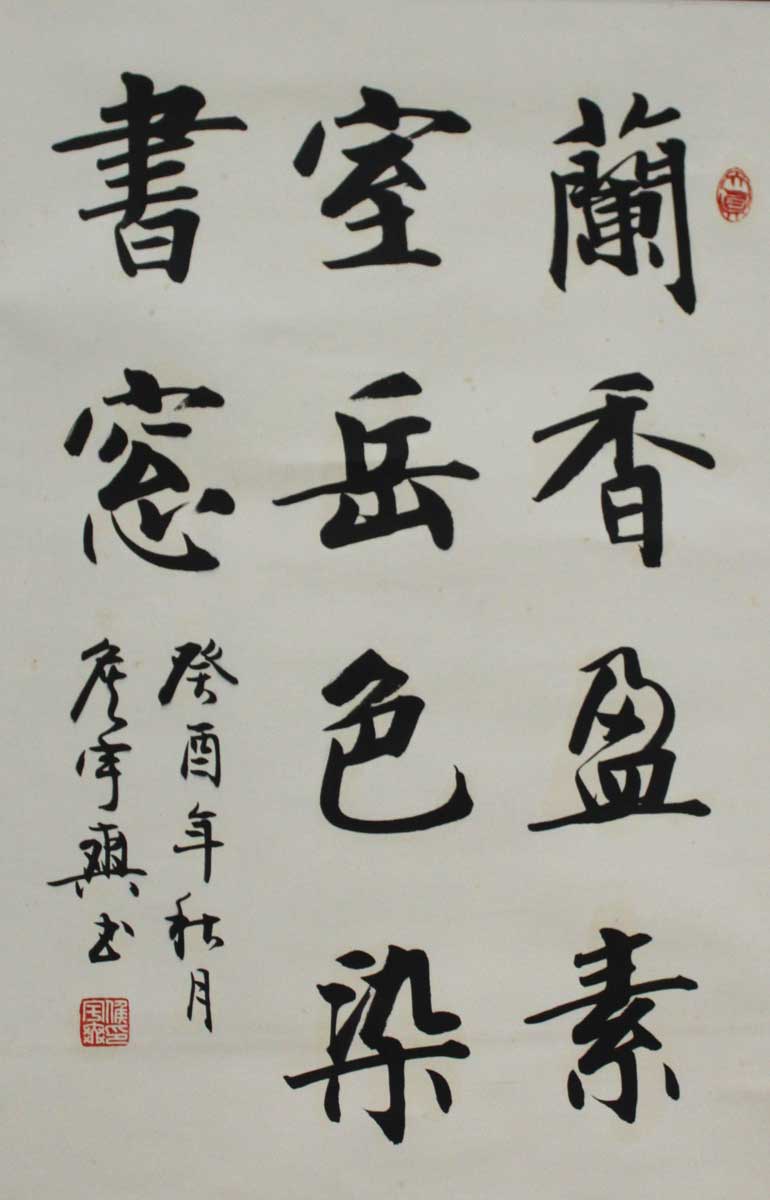 蘭香盈素
室岳色染
書窓
癸酉年秋月
侯宇興书